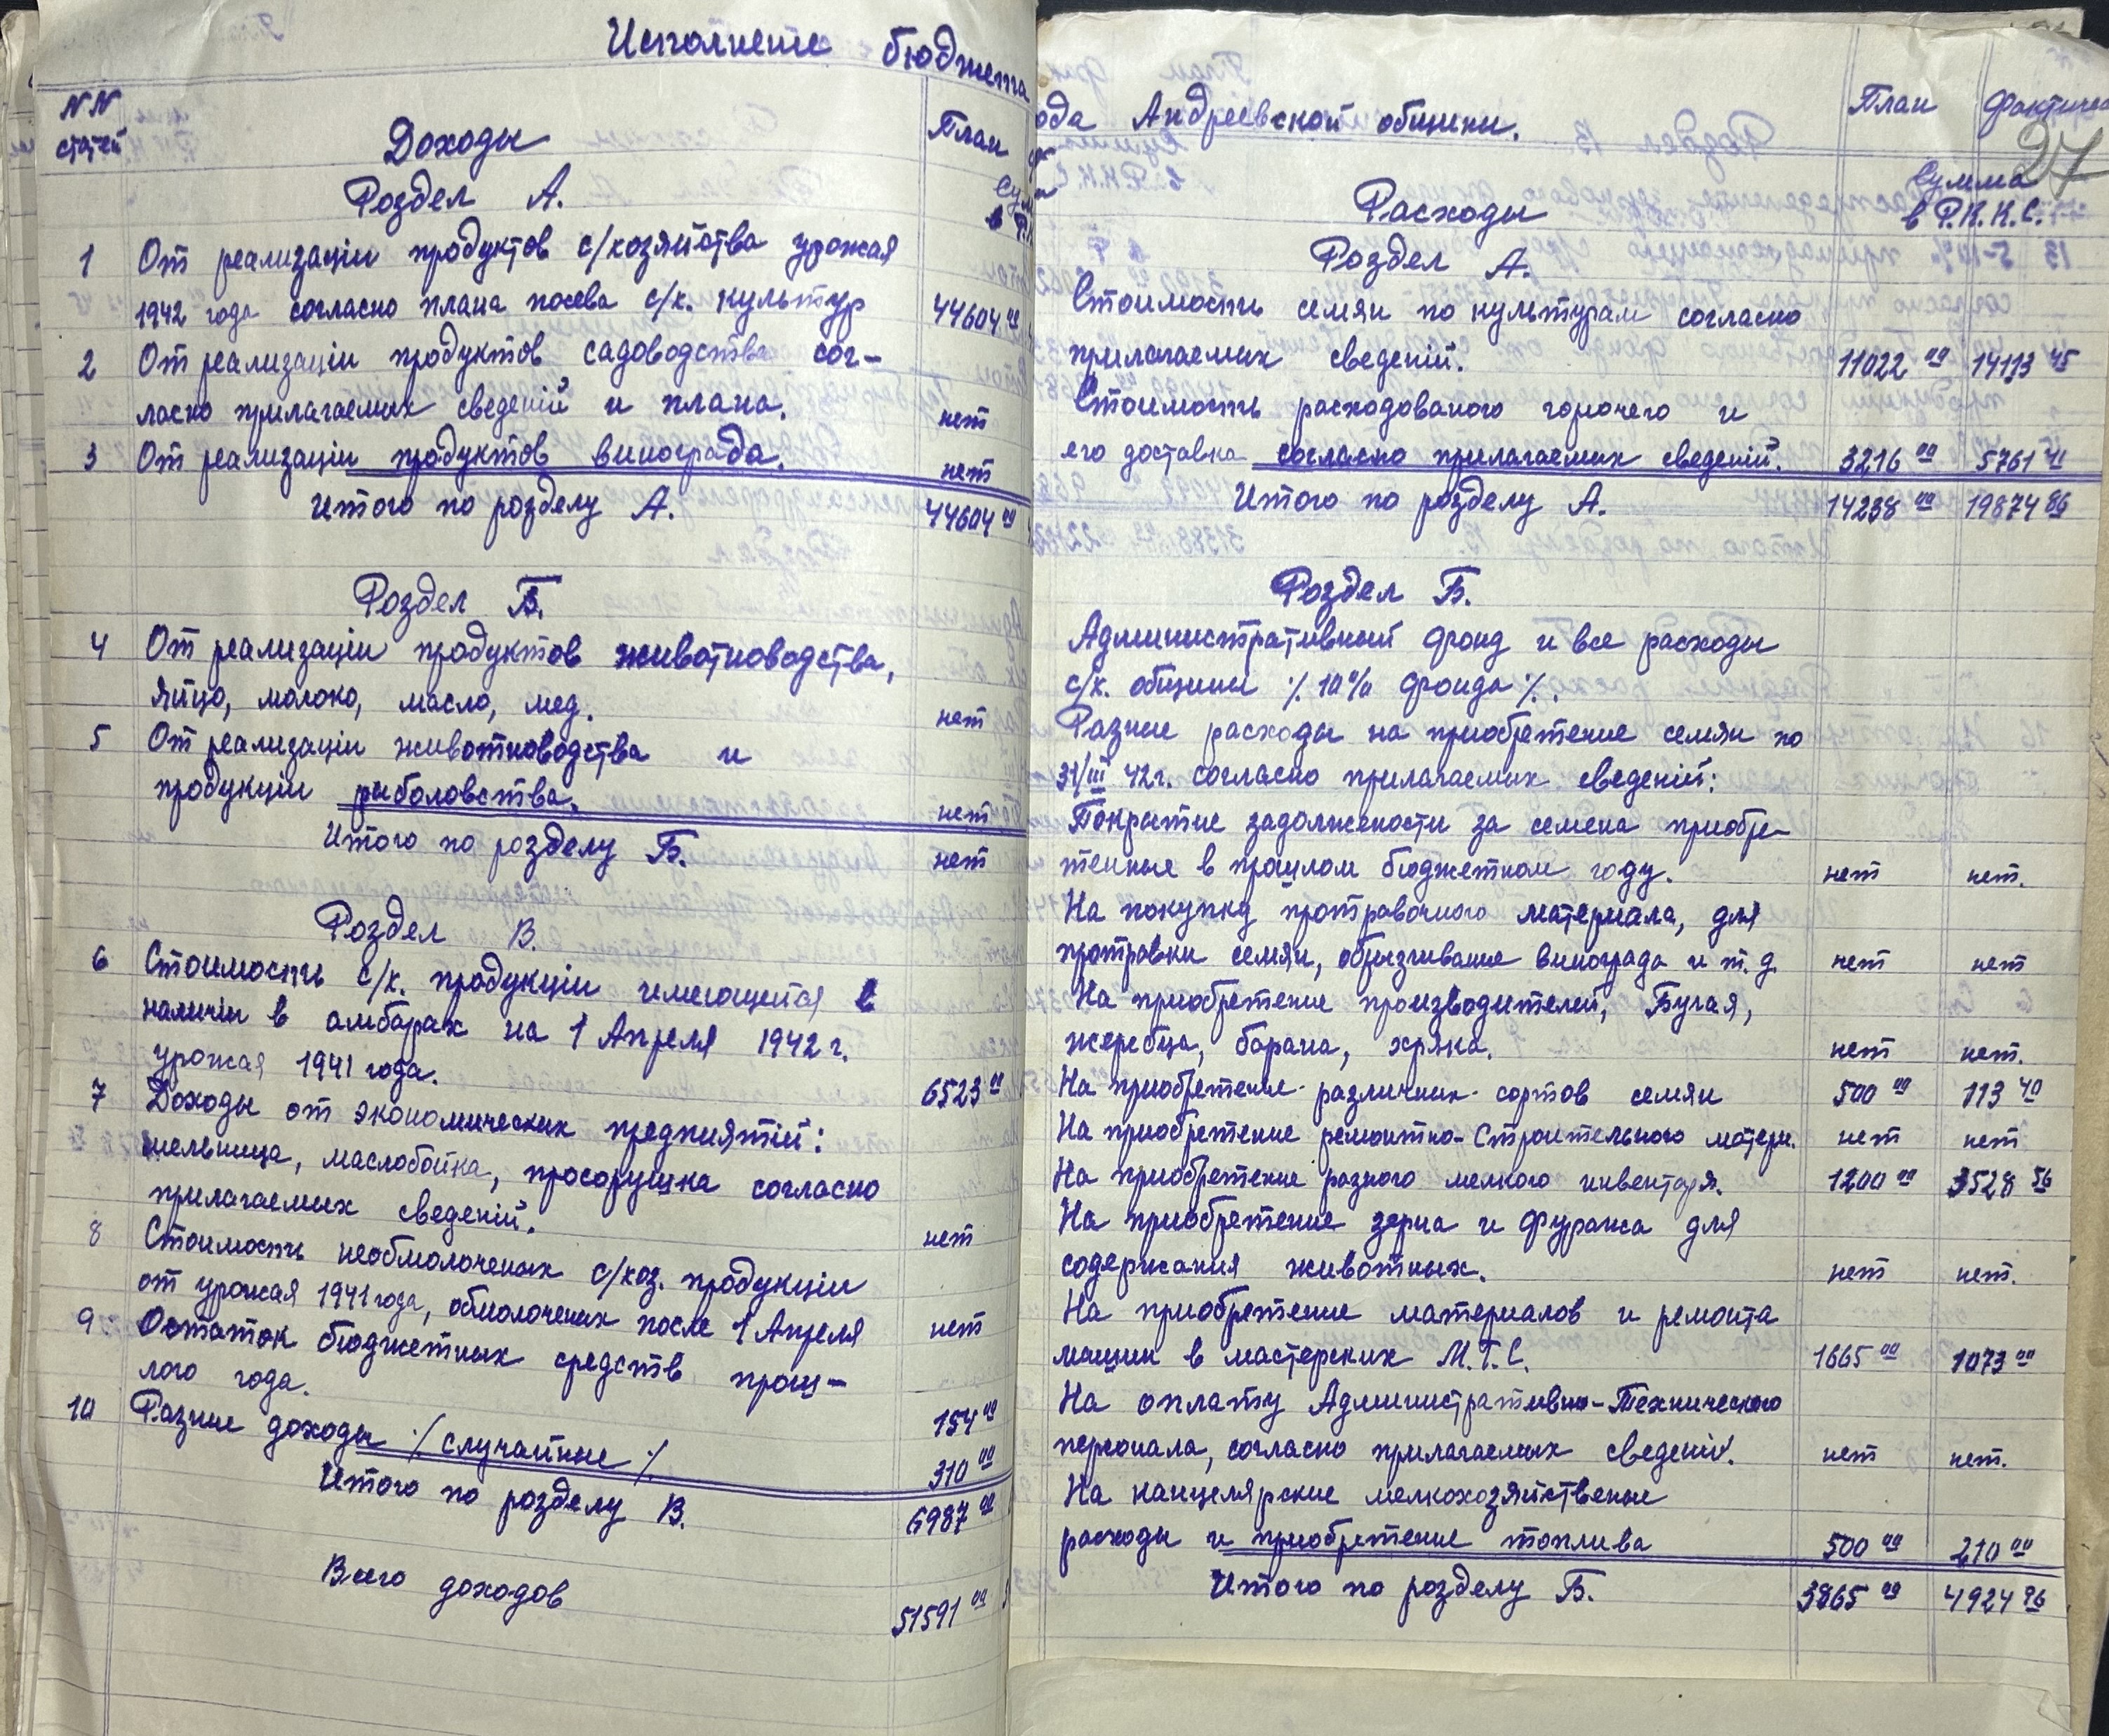 Исполнение бюджета
NN
статей
Доходы
План
Сум
в Р.
Роздел А.
1 От реализаціи продуктов с/хозяйства урожая
1942 года согласно плана посева с/х. культур 44604 00
2 От реализаціи продуктов садоводства сог-
ласно прилагаемых сведеній и плана. нет
3 От реализаціи продуктов винограда. нет
Итого по розделу А. 44604 00
Роздел Б.
4 От реализаціи продуктов животноводства,
яйцо, молоко, масло, мед. нет
5 От реализаціи животноводства и
продукціи рыболовства. нет
Итого по розделу Б. нет
Роздел В.
6 Стоимость с/х. продукціи имеющейся в
наличіи в амбарах на 1 Апреля 1942 г.
урожая 1941 года. 6523 00
7 Доходы от экономических предпиятій:
мельница, маслобойка, просорушка согласно
прилагаемых сведеній. нет
8 Стоимость необмолоченых с/хоз. продукціи
от урожая 1941 года, обмолоченых после 1 Апреля нет
9 Остаток бюджетных средств прош-
лого года. 154 00
10 Разные доходы ·/· случайные ·/· 310 00
Итого по розделу В. 6987 00
Всего доходов 51591 00
ода Андреевской общины.
План Фактичес
27
Сумма
в Р.К.К.С.
Расходы
Роздел А.
Стоимость семян по культурам согласно
прилагаемых сведеній. 11022 00 14113 45
Стоимость расходованого горючего и
его доставка согласно прилагаемых сведеній. 3216 00 5761 41
Итого по розделу А. 14238 00 19874 86
Роздел Б.
Административный фонд и все расходы
с/х. общины ·/· 10% фонда ·/·.
Разные расходы на приобретение семян по
31/III 42г. согласно прилагаемых сведеній:
Покрытие задолжености за семена приобре-
тенные в прошлом бюджетном году. нет нет.
На покупку протравочного материала, для
протравки семян, обрызгивание винограда и т.д. нет нет
На приобретение производителей, Бугая,
жеребца, барана, хряка. нет нет.
На приобретение различных сортов семян 500 00 113 40
На приобретение ремонтно-Строительного матери. нет нет
На приобретение разного мелкого инвентаря. 1200 00 3528 56
На приобретение зерна и фуража для
содержания животных. нет нет.
На приобретение материалов и ремонта
машин в мастерских М.Т.С. 1665 00 1073 00
На оплату Административно-Технического
персонала, согласно прилагаемых сведеній. нет нет.
На канцелярские мелкохозяйственые
расходы и приобретение топлива 500 00 210 00
Итого по розделу Б. 3865 00 4924 96